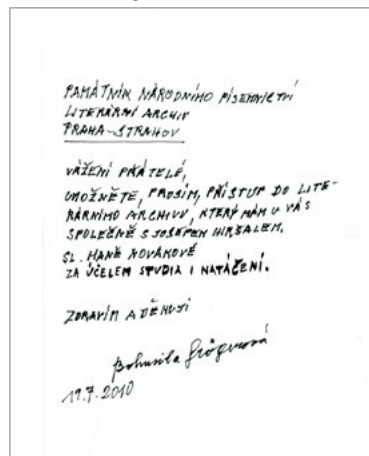 PAMÁTNÍK NÁRODNÍHO PÍSEMNICTVÍ
LITERÁRNÍ ARCHIV
PRAHA-STRAHOV
VÁŽENÍ PŘÁTELÉ,
UMOŽNĚTE, PROSÍM, PŘÍSTUP DO LITE-
RÁRNÍHO ARCHIVU, KTERÝ MÁM U VÁS
SPOLEČNĚ S JOSEFEM HIRŠALEM,
SL. HANĚ NOVÁKOVÉ
ZA ÚČELEM STUDIA I NATÁČENÍ.
ZDRAVÍM A DĚKUJI
Bohumila Grögerová
19.7.2010